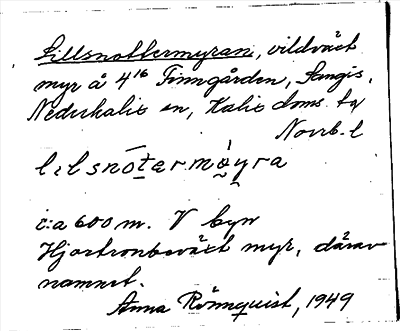 Lillsnottermyran, vildväxt
myr å 4¹⁶ Finngården, Sangis,
Nederkalix sn, Kalix doms. tg
Norrb. l
lılsnōtermyra
c:a 600 m. V byn
Hjortronbeväxt myr, därav
namnet.
Anna Rönnquist, 1949